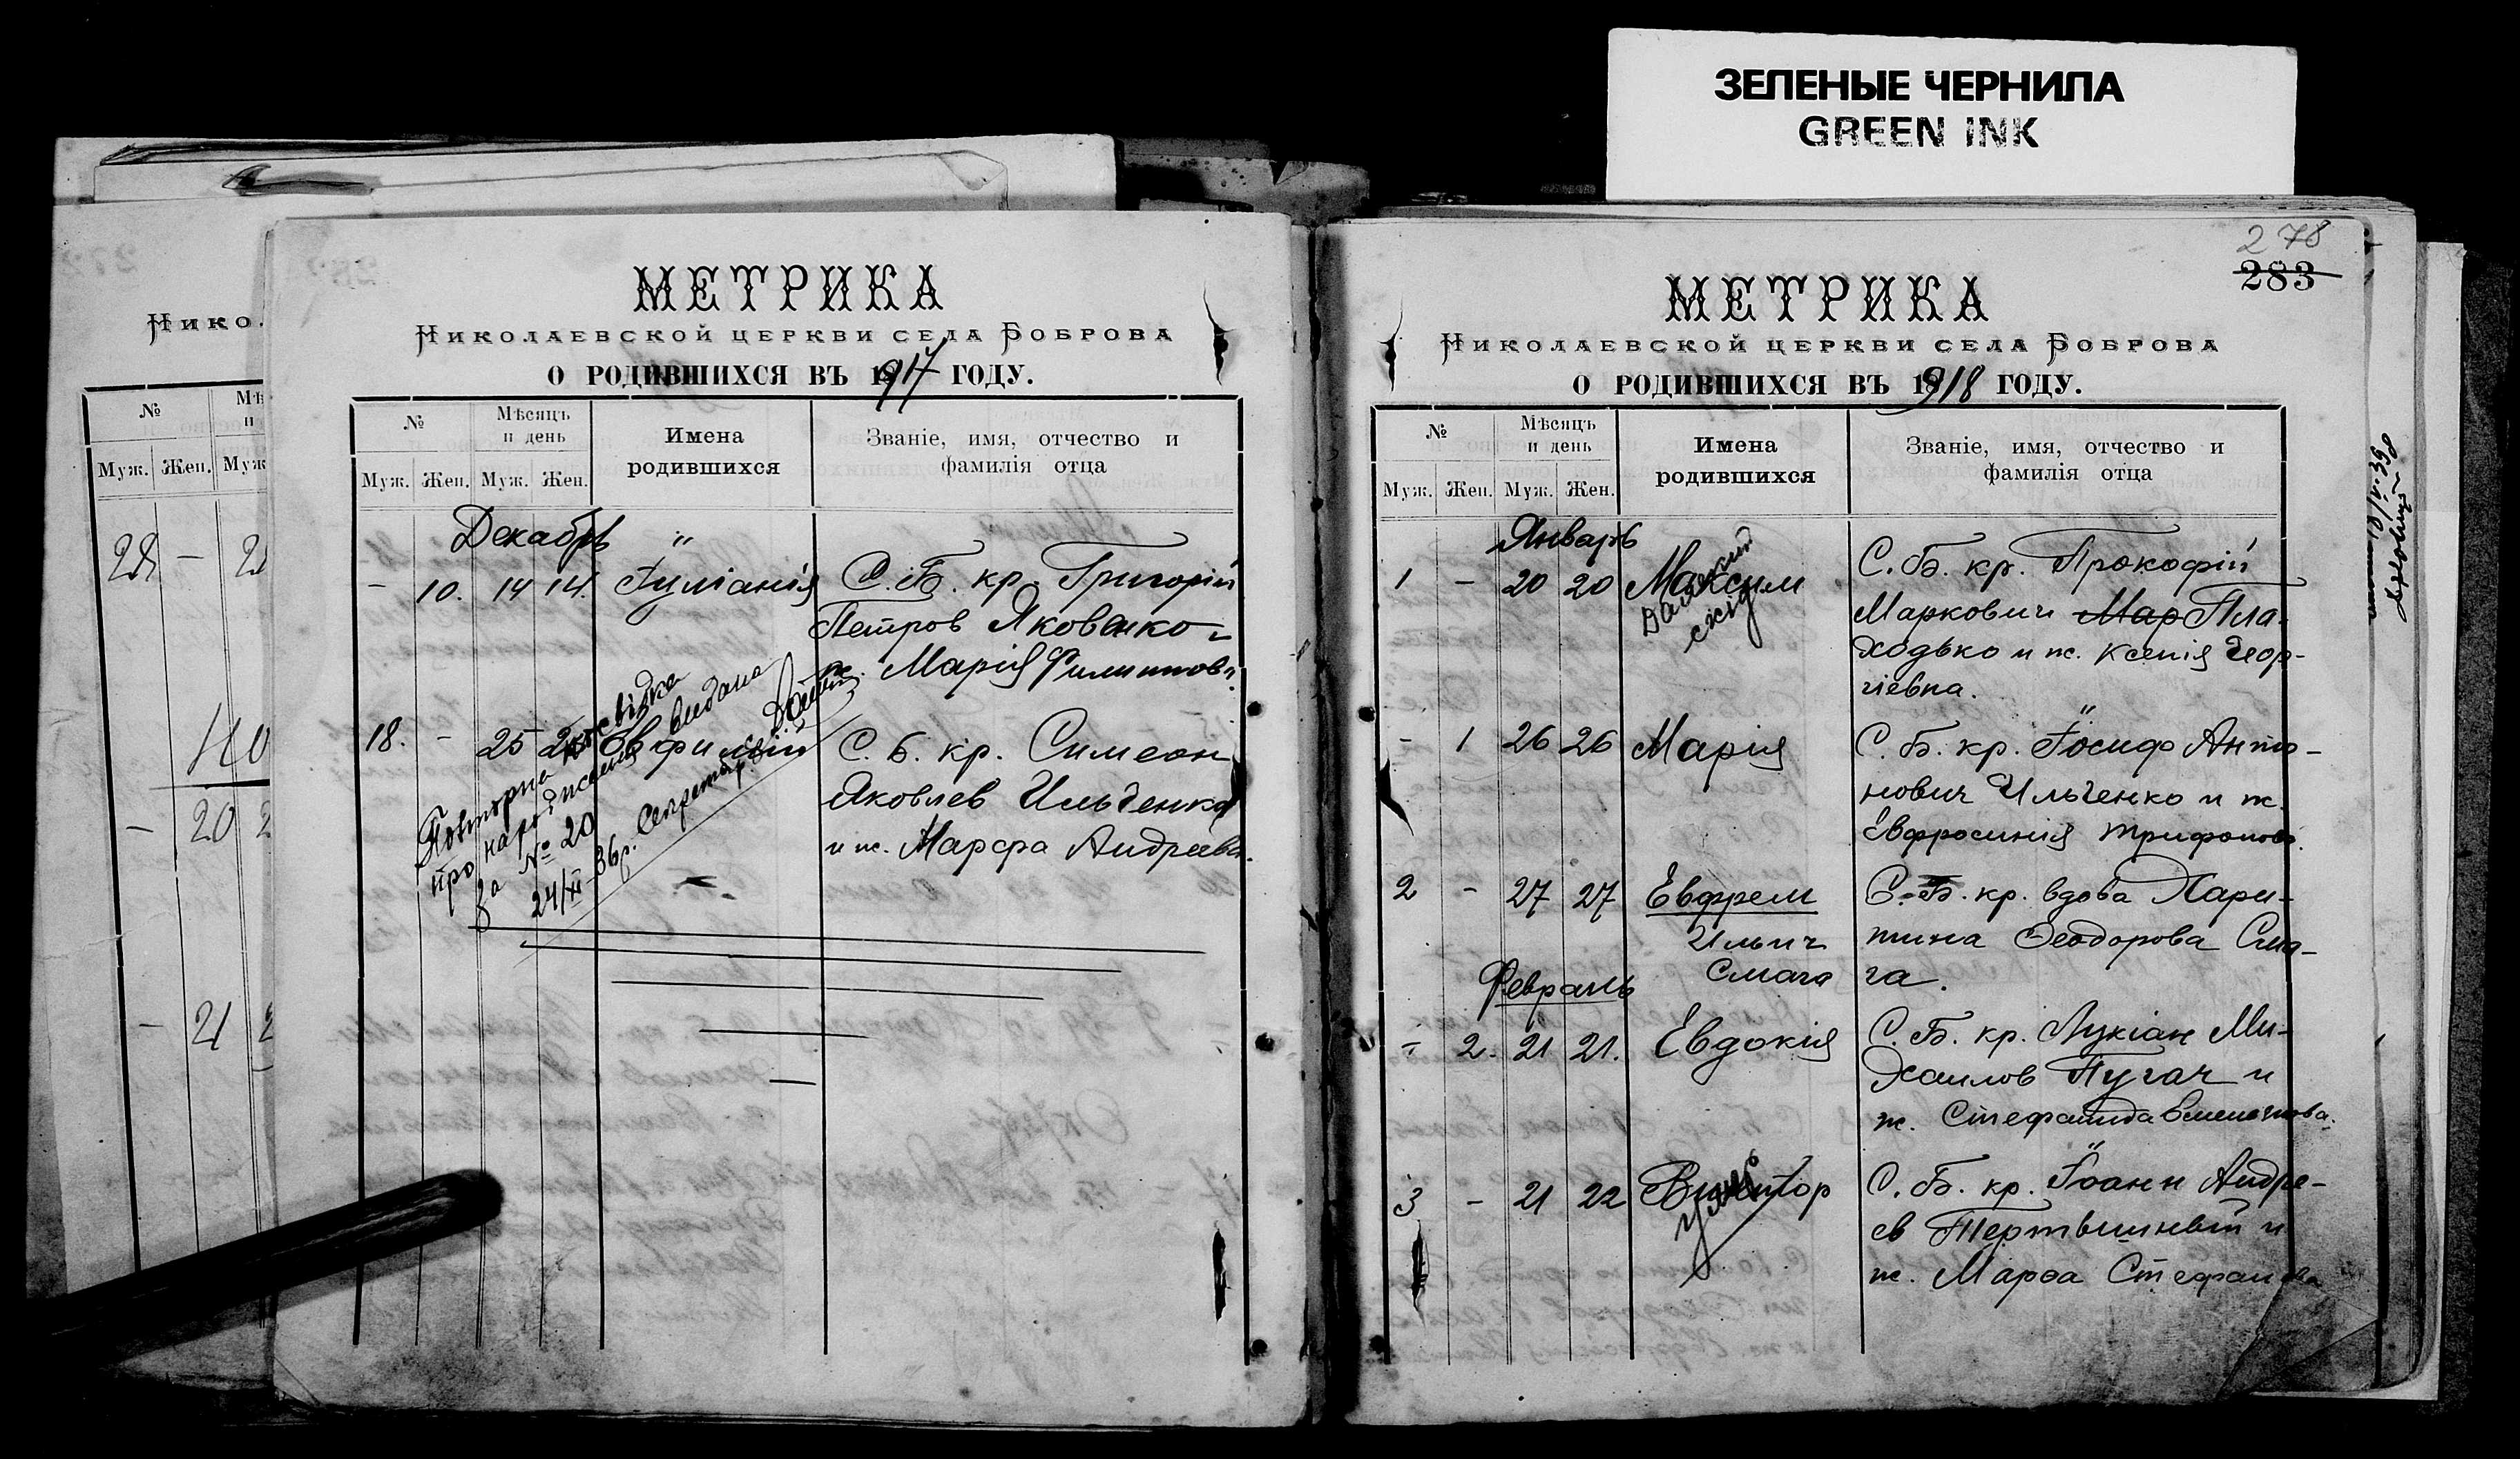 ЗЕЛЕНЫЕ ЧЕРНИЛА
GREEN INK
Нико
№
Мѣ
и
Муж. Жен. Муж
28 - 2
Но
- 20 2
- 21 2
МЕТРИКА
Николаевской церкви села Боброва
О РОДИВШИХСЯ ВЪ 1917 ГОДУ.
№
Мѣсяцъ и день
Имена родившихся
Званіе, имя, отчество и фамилія отца
Муж. Жен. Муж. Жен.
Декабрь
- 10. 14 14. Іуліанія С. Б. кр. Григорій
Петров Яковенко и
ж. Марія Филиппова
18. - 25 Евфимій С. Б. кр. Симеон
Яковлев Ильченко
и ж. Марфа Андреева.
Повторна посвідка
про народження видана
за № 20
24/XI-36р. Секретар с/р
278
283
МЕТРИКА
Николаевской церкви села Боброва
О РОДИВШИХСЯ ВЪ 1918 ГОДУ.
№
Мѣсяцъ и день
Имена родившихся
Званіе, имя, отчество и фамилія отца
Муж. Жен. Муж. Жен.
Январь
1 - 20 20 Максим С. Б. кр. Прокофій
Маркович Мар Пла-
ходько и ж. Ксенія Геор-
гіевна.
Далекий
схід
- 1 26 26 Марія С. Б. кр. Іосиф Анто-
нович Ильченко и ж.
Евфросинія Трифонова.
2 - 27 27 Евфрем С. Б. кр. вдова Хари-
Ильич тина Феодорова Сма-
Смага га.
Февраль
- 2. 21 21. Евдокія С. Б. кр. Лукіан Ми-
хаилов Пугач и
ж. Стефанида
3 - 21 22 Виктор С. Б. кр. Іоанн Андре-
ев Тертышный и
ж. Марѳа Стефанова
Умер